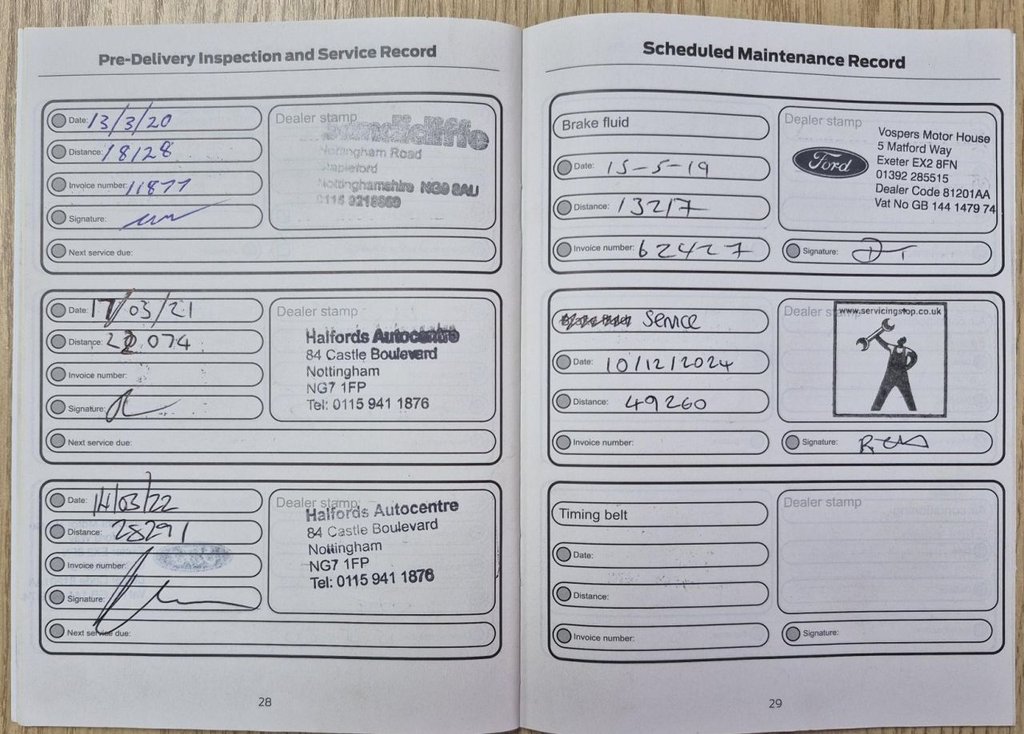 Pre-Delivery Inspection and Service Record
Date: 13/3/20
Distance: 18128
Invoice number: 11877
Signature:
Next service due:
Dealer stamp
Sandicliffe
Nottingham Road
Stapleford
Nottinghamshire NG9 8AU
Date: 17/03/21
Distance: 22 074
Invoice number:
Signature:
Next service due:
Dealer stamp
Halfords Autocentre
84 Castle Boulevard
Nottingham
NG7 1FP
Tel: 0115 941 1876
Date: 14/03/22
Distance: 28291
Invoice number:
Signature:
Next service due:
Dealer stamp
Halfords Autocentre
84 Castle Boulevard
Nottingham
NG7 1FP
Tel: 0115 941 1876
28
Scheduled Maintenance Record
Brake fluid
Date: 15-5-19
Distance: 13217
Invoice number: 62427
Dealer stamp
Ford
Vospers Motor House
5 Matford Way
Exeter EX2 8FN
01392 285515
Dealer Code 81201AA
Vat No GB 144 1479 74
Signature:
Service
Date: 10/12/2024
Distance: 49260
Invoice number:
Dealer stamp
www.servicingstop.co.uk
Signature:
Timing belt
Date:
Distance:
Invoice number:
Dealer stamp
Signature:
29